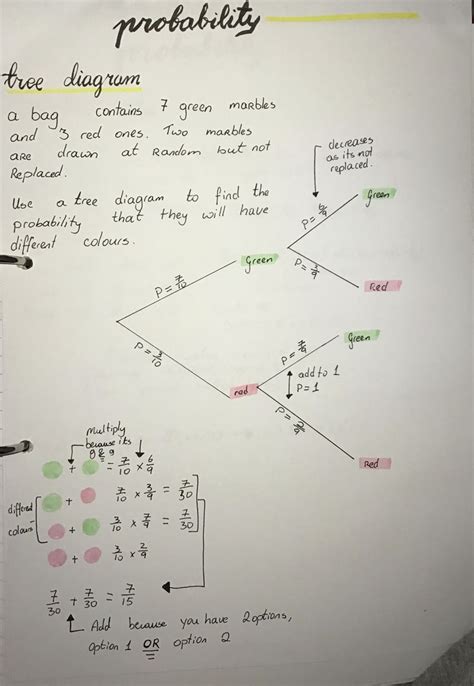 probability
tree diagram
a bag contains 7 green marbles
and 3 red ones. Two marbles
are drawn at random but not
Replaced.
Use a tree diagram to find the
probability that they will have
different colours.
decreases
as its not
replaced.
P = 7/10
Green
P = 6/9
Green
P = 3/9
Red
P = 3/10
red
P = 7/9
Green
add to 1
P = 1
P = 2/9
Red
multiply
because its
g & g
+ = 7/10 × 6/9
+ 7/10 × 3/9 = 7/30
+ 3/10 × 7/9 = 7/30
+ 3/10 × 2/9
colours
7/30 + 7/30 = 7/15
Add because you have 2 options,
option 1 OR option 2